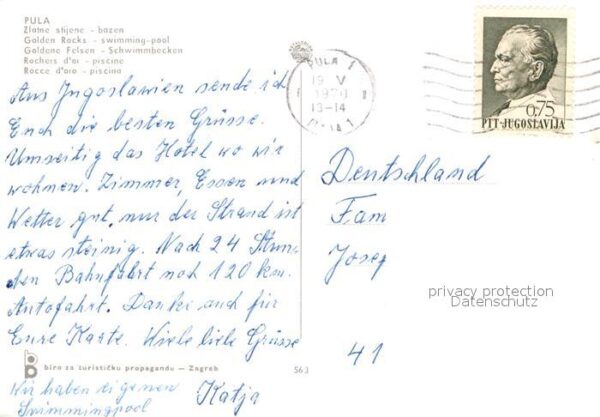 PULA
Zlatne stijene - bazen
Golden Rocks - swimming-pool
Goldene Felsen - Schwimmbecken
Rochers d'or - piscine
Rocce d'oro - piscina
Aus Jugoslawien sende ich
Euch die besten Grüsse.
Umseitig das Hotel wo wir
wohnen. Zimmer, Essen und
Wetter gut, nur der Strand ist
etwas steinig. Nach 24 Stun-
den Bahnfahrt noch 120 km.
Autofahrt. Danke auch für
Eure Karte. Viele liebe Grüsse
Katja
Wir haben eigenen
Swimmingpool
biro za turističku propagandu — Zagreb
563
PULA 1
19 V
13-14
0.75
PTT-JUGOSLAVIJA
Deutschland
Fam
Josef
privacy protection
Datenschutz
41